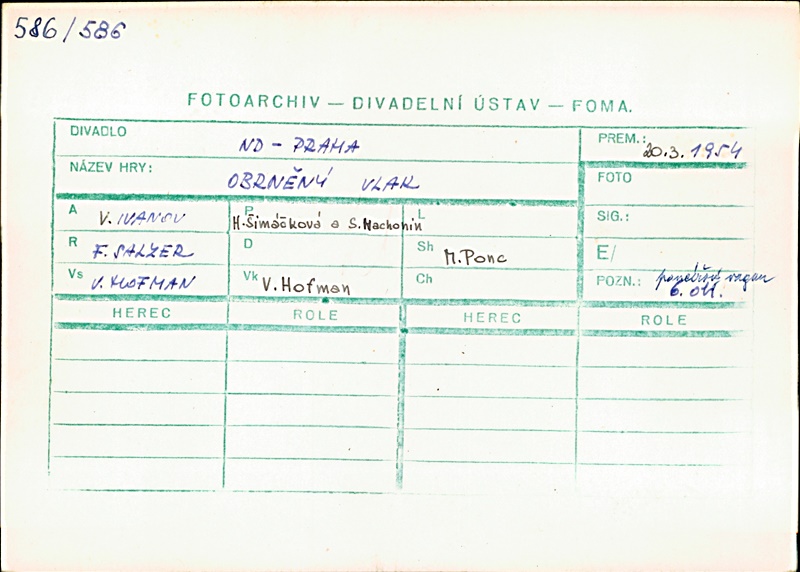 586/586
FOTOARCHIV — DIVADELNÍ ÚSTAV — FOMA.
DIVADLO ND - PRAHA
PREM.: 20.3.1954
NÁZEV HRY: OBRNĚNÝ VLAK
FOTO
A V. IVANOV
P H. Šimáčková a S. Machonin
L
SIG.:
R F. SALZER
D
Sh M. Ponc
E/
Vs V. HOFMAN
Vk V. Hofman
Ch
POZN.: 6. Ott.
HEREC ROLE HEREC ROLE